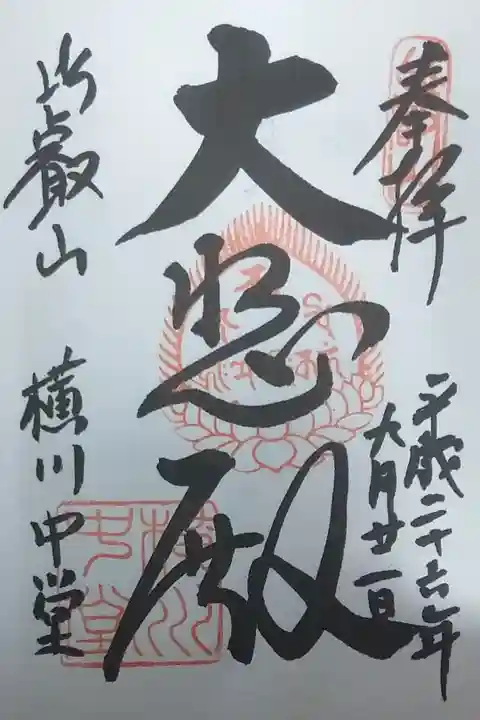 奉拝
平成二十六年
六月廿一日
大悲殿
比叡山 横川中堂
横川
中堂